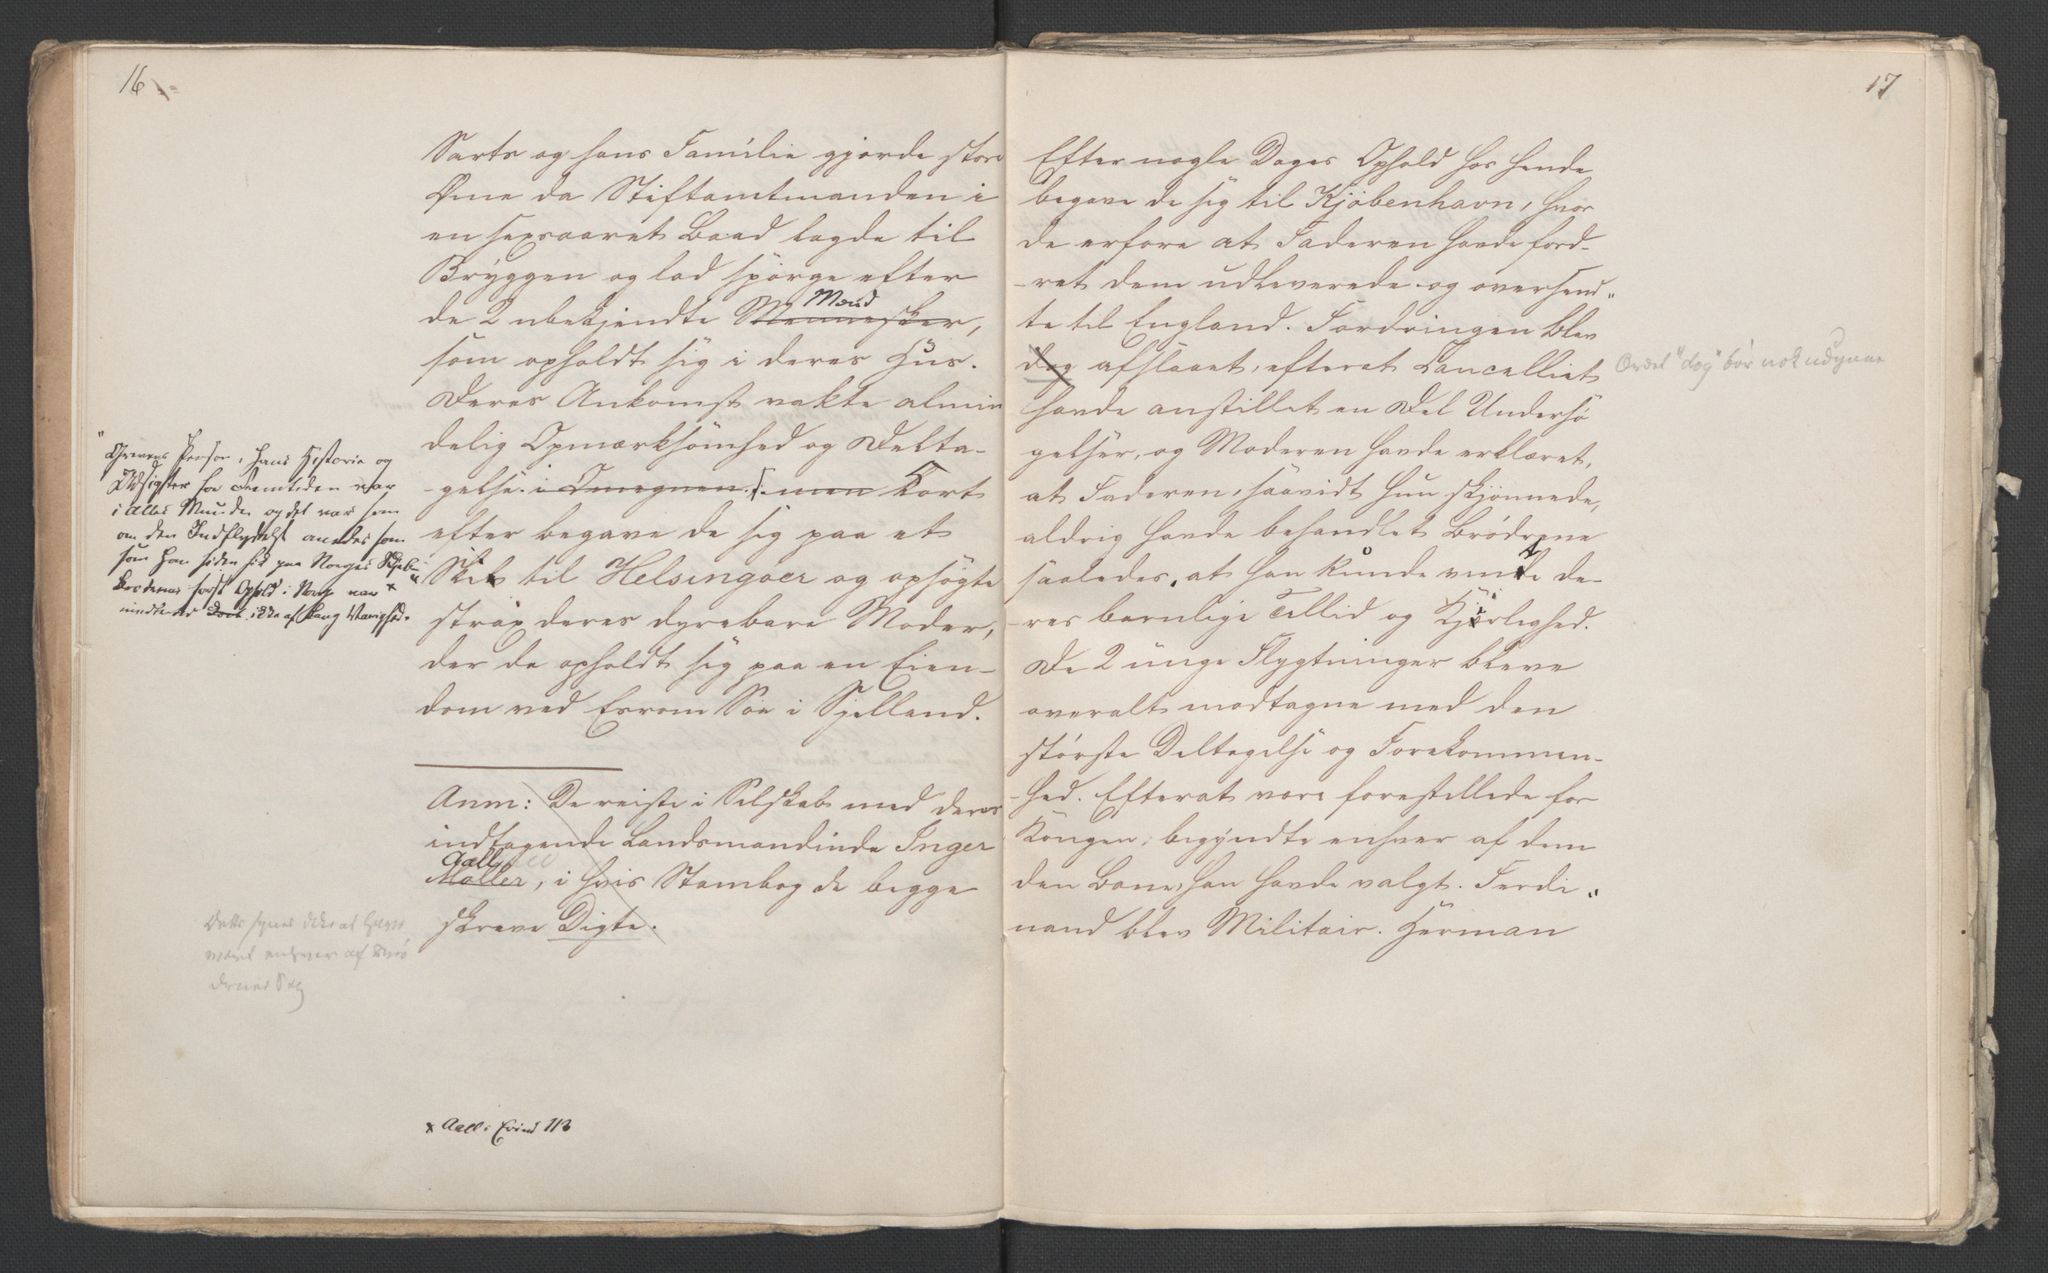 16
Sarts og hans Familie gjorde store
Øine da Stiftamtmanden i
en sexaaret Baad lagde til
Bryggen og lod spørge efter
Mænd
de 2 ubekjendte Mennesker,
som opholdt sig i deres Hus.
Deres Ankomst vakte almin
delig Opmærksomhed og Delta-
gelse i Omegnen. men Kort
efter begave de sig paa et
Skib til Helsingoer og opsøgte
strax deres dyrebare Moder,
der da opholdt sig paa en Eien-
dom ved Esrom Søe i Sjelland.
"Grevens Person, hans Historie og
Udsigter for Fremtiden var
i Alles Munde og det var som
om den Indflydelse anedes som
som han siden fik paa Norges Skjebne"
Brødrenes første Ophold i Norge var x
imidlertid kort ikke af lang Varighed.
Anm: De reiste i Selskab med deres
indtagende Landsmandinde Inger
Aall
Møller, i hvis Stambog de begge
skreve Digte.
Dette synes ikke at
enhver af Brø
drenes
x Aall: Erind 113
17
Efter nogle Dages Ophold hos hende
begave de sig til Kjøbenhavn, hvor
de erfore at Faderen havde ford-
ret dem udleverede og oversend"
te til England. Fordringen blev
dog afslaaet, efterat Cancelliet
havde anstillet en Del Undersø
gelser, og Moderen havde erklæret,
at Faderen, saavidt hun skjønnede,
aldrig havde behandlet Brødrene
saaledes, at han kunde vinde de-
res barnlige Tillid og Kjærlighed.
De 2 unge Flygtninger bleve
overalt modtagne med den
største Deltagelse og Forekommen-
hed. Efterat vare forestillede for
Kongen, begyndte enhver af dem
den Bane, han havde valgt. Ferdi"
nand blev Militair. Herman
Ordet "dog" bør nok udgaae